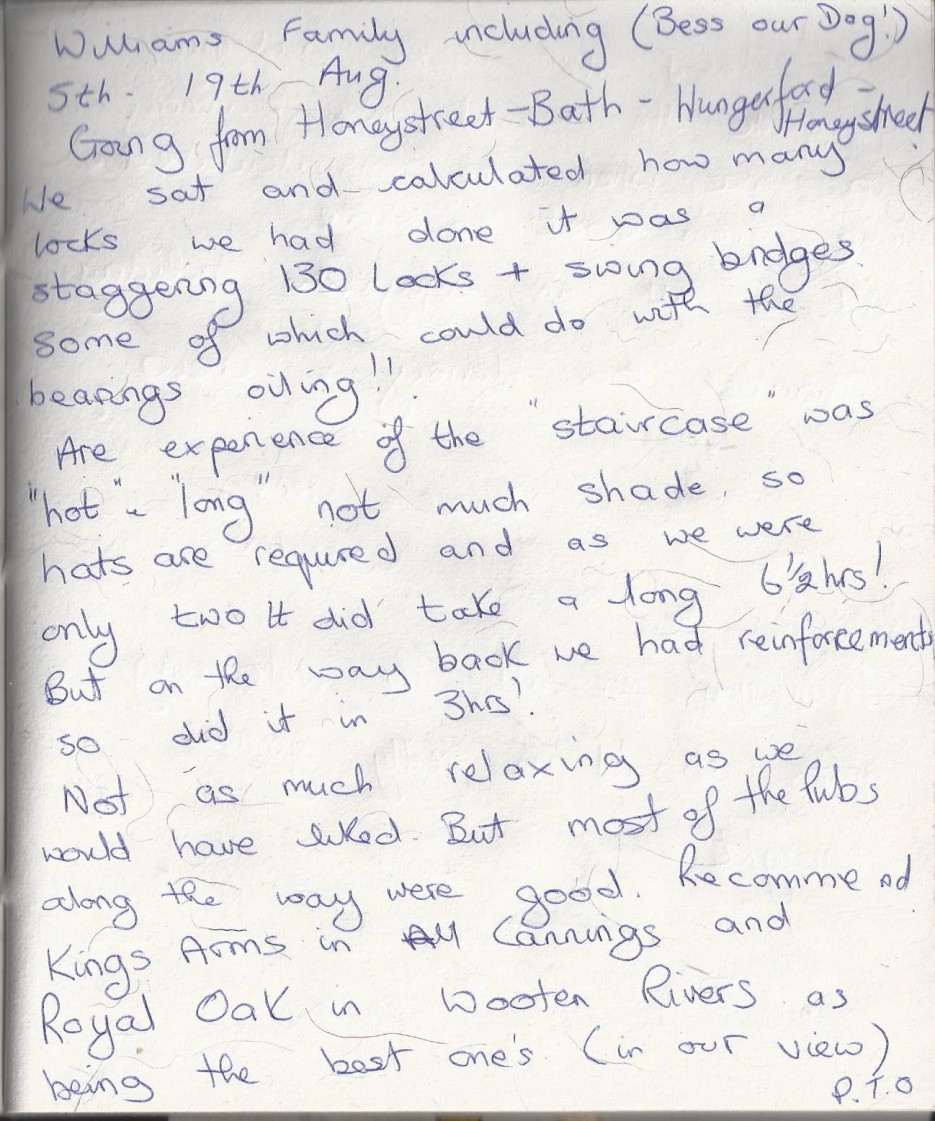 Williams Family including (Bess our Dog!)
5th - 19th Aug.
Going from Honeystreet - Bath - Hungerford -
Honeystreet
We sat and calculated how many
locks we had done it was a
staggering 130 locks + swing bridges
some of which could do with the
bearings oiling!!
Are experience of the "staircase" was
"hot" & "long" not much shade, so
hats are required and as we were
only two it did take a long 6 1/2 hrs!
But on the way back we had reinforcements
so did it in 3hrs!
Not as much relaxing as we
would have liked. But most of the Pubs
along the way were good. Recommend
Kings Arms in All Cannings and
Royal Oak in Wooten Rivers as
being the best one's (in our view)
P.T.O